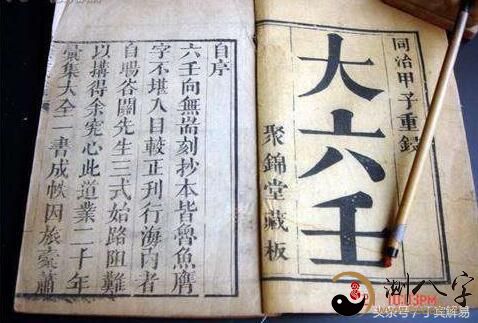 同治甲子重鐫
大六壬
聚錦堂藏板
自序
六壬向無耑刻抄本皆魯魚膺
字不堪入目較正刊行海內者
自場苔闗先生三式始路阻難
以搆得余究心此道業二十年
彙集大全一書成帙因旅橐蕭
测八字
10:03PM
头条号/宾解易